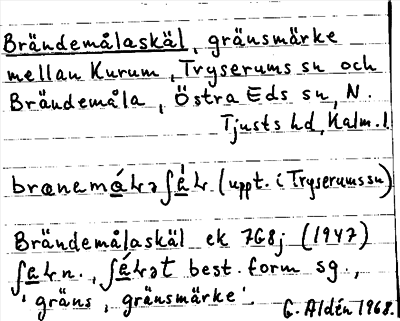 Brändemålaskäl, gränsmärke
mellan Kurum, Tryserums sn och
Brändemåla, Östra Eds sn, N.
Tjusts hd, Kalm. l.
(uppt. i Tryserums sn)
Brändemålaskäl ek 7G8j (1947)
best. form sg.,
'gräns, gränsmärke'.
G. Aldén 1968.